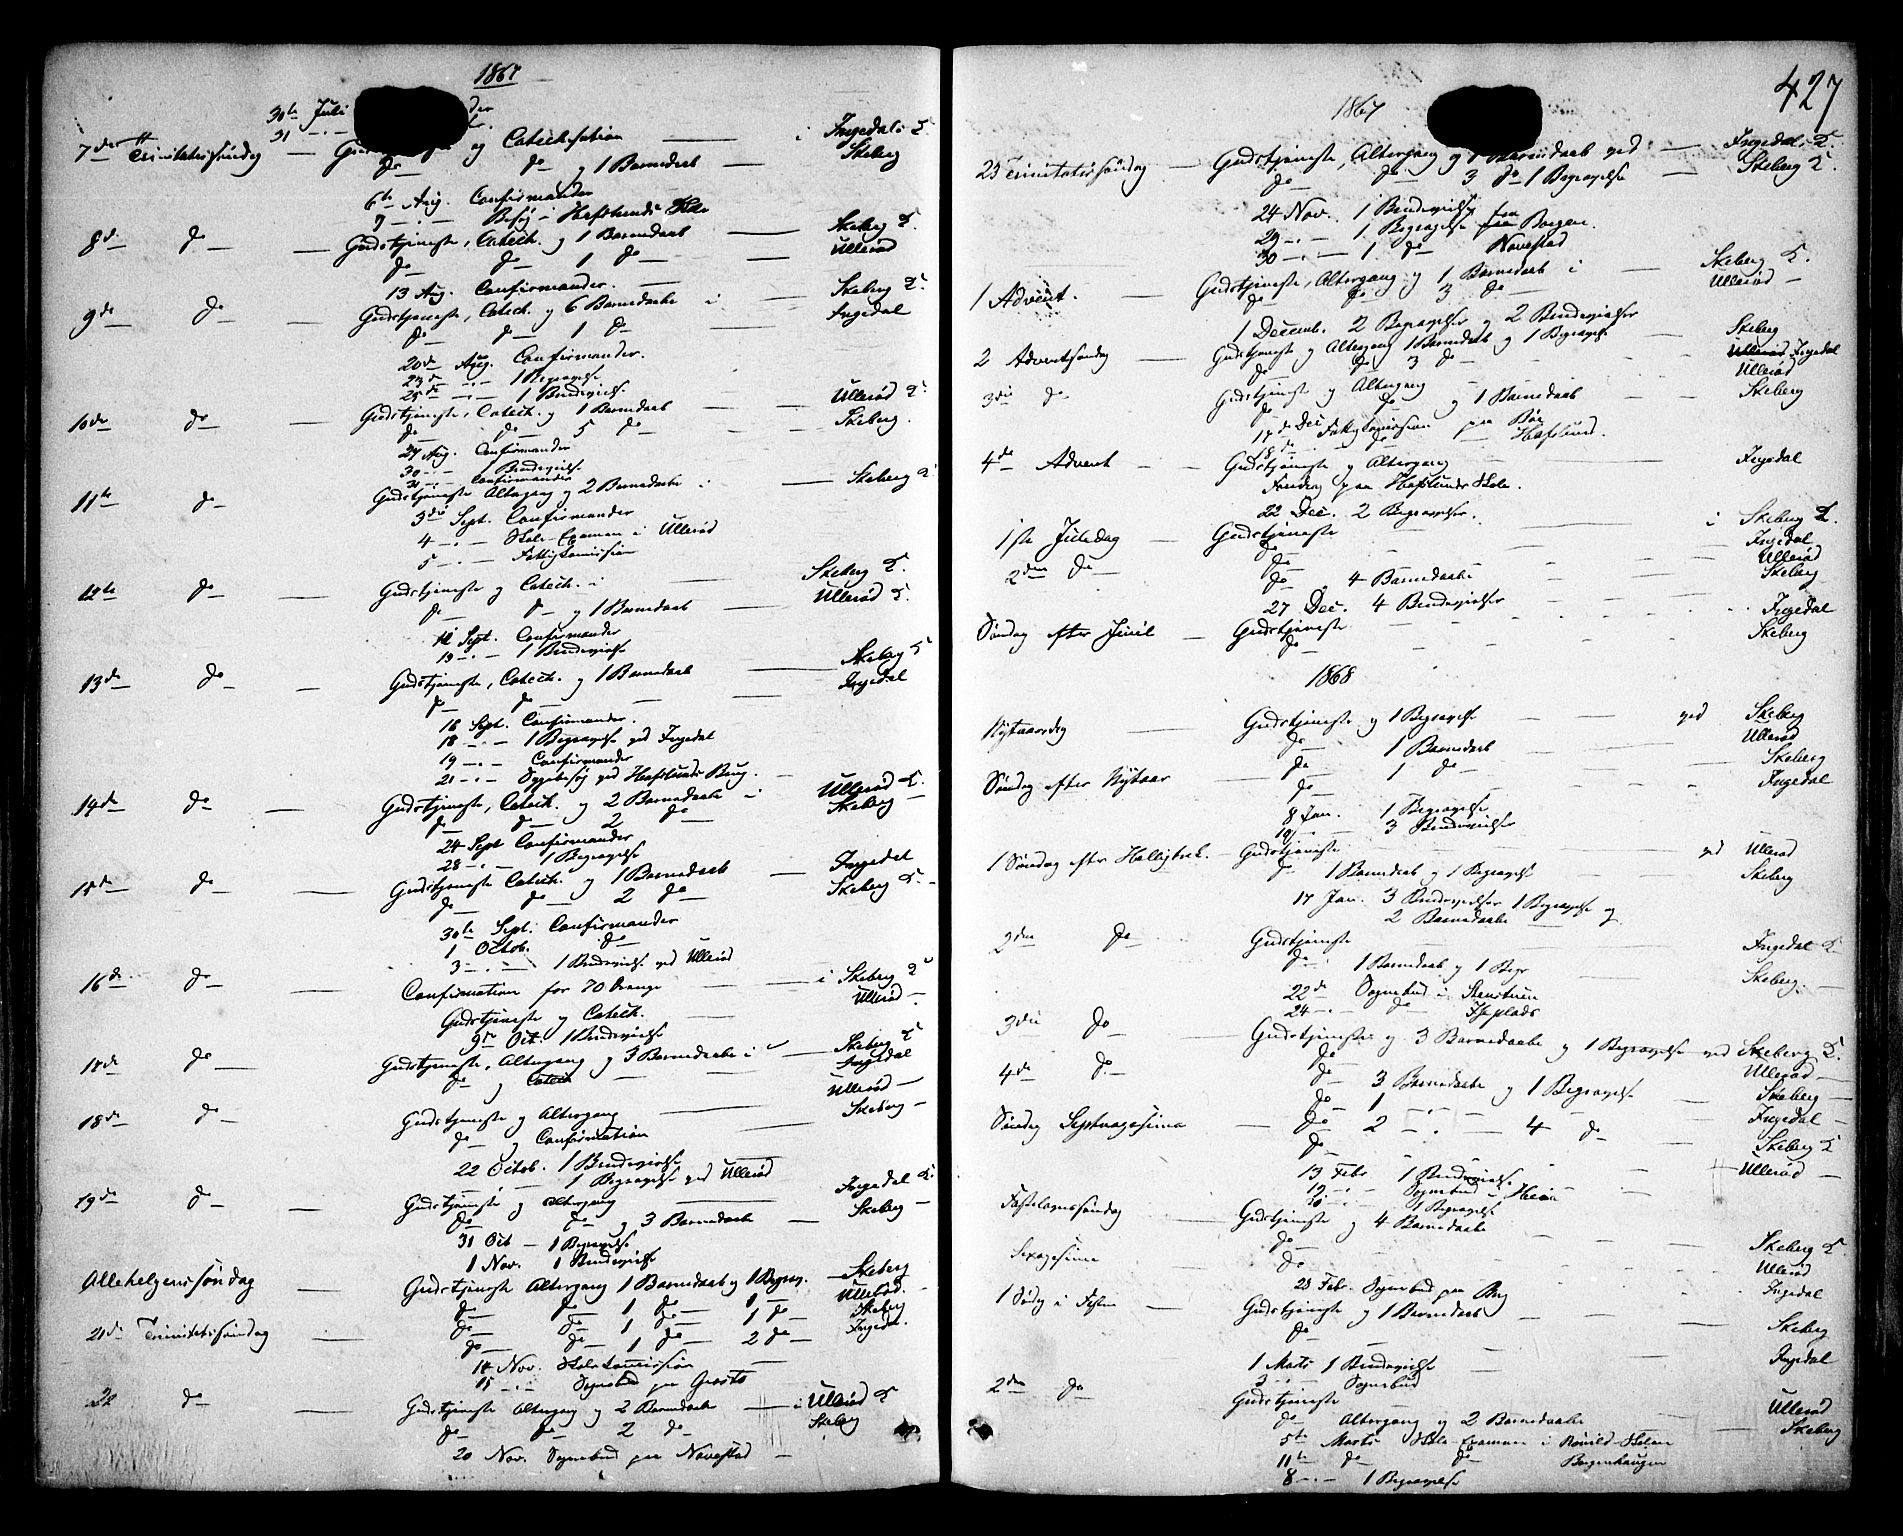 1867
30te Juli
31 -"-
7de Trinitatissøndag — og Catechisation — i Ingedal
do do og 1 Barnedaab — Skeberg
6te Aug. Confirmander
7 -"- Besøg i Hafslunds Skole
8de do — Gudstjeneste, Catech. og 1 Barnedaab — Skeberg
do do 1 do — Ullerød
13 Aug. Confirmander.
9de do — Gudstjeneste, Catech. og 6 Barnedaabe i — Skeberg
do do 1 do Ingedal
20de Aug. Confirmander.
23de -"- 1 Begravelse
25de -"- 1 Brudevielse
10de do — Gudstjeneste, Catech. og 1 Barnedaab — Ullerød
do do 5 do — Skeberg
27 Aug. Confirmander
30 -"- 1 Brudevielse
31 -"- Confirmander
11te do Gudstjeneste Altergang og 2 Barnedaabe i — Skeberg
3die Sept. Confirmander
4 -"- Skole-Examen i Ullerød
5 -"- Fattigkomission
12te do Gudstjeneste og Catech. i — Skeberg
do do og 1 Barnedaab — Ullerød
Sept. Confirmander
13 -"- 1 Brudevielse
13de do — Gudstjeneste, Catech. og 1 Barnedaab — Skeberg
do do — Ingedal
Sept. Confirmander.
18 -"- 1 Begravelse ved Ingedal
19 -"- Confirmander
21 -"- Sygebesøg ved Hafslunds Brug.
14de do — Gudstjeneste, Catech. og 2 Barnedaabe i — Ullerød
do do 2 do — Skeberg
24 Sept Confirmander
28 -"- 1 Begravelse
15de do — Gudstjeneste Catech. og 1 Barnedaab — Ingedal
do do 2 do Skeberg
30te Sept. Confirmander
1 Octob. do
3 -"- 1 Brudevielse ved Ullerød
16de do Confirmation for 70 Drenge — i Skeberg
Gudstjeneste og Catech. Ullerød
9de Oct. 1 Brudevielse
18de do — Gudstjeneste, Altergang og 3 Barnedaabe i — Skeberg
do og Catech — Ingedal
Ullerød
18de do Gudstjeneste og Altergang — Skeberg
do og Confirmation
22 Octob. 1 Brudevielse
1 Begravelse ved Ullerød
19de do Gudstjeneste og Altergang — Ingedal
do do og 3 Barnedaabe — Skeberg
31 Oct — 1 Begravelse
1 Nov. 1 Brudevielse
Allehelgenssøndag Gudstjeneste Altergang 1 Barnedaab og 1 Begrav. — Skeberg
do do 1 do 1 do Ullerød
do do 1 Skeberg
21de Trinitatissøndag — do do 1 do 2 do Ingedal.
14 Nov. Skolekomission
15 -"- Sognebud paa
22 do Gudstjeneste Altergang og 2 Barnedaabe — i Ullerød
do do 2 do Skeberg
20 Nov. Sognebud paa Navestad
427
1867
23 Trinitatissøndag — Gudstjeneste, Altergang og 1 Barnedaab ved — Ingedal
do do 3 do 1 Begravelse — Skeberg
24 Nov. 1 Brudevielse
29 -"- 1 Begravelse fra Borgen.
30 -"- 1 do Navestad
1 Advent. — Gudstjeneste, Altergang og 1 Barnedaab i — Skeberg
do do 3 do Ullerød
1 Decemb. 2 Begravelser og 2 Brudevielser
2 Adventsøndag — Gudstjeneste og Altergang 1 Barnedaab og 1 Begravelse Skeberg
do do 3 do Ullerød Ingedal
3die do Gudstjeneste og Altergang Ullerød
do do og 1 Barnedaab — Skeberg
17de Dec Fattigkomission paa
18de do Hafslund.
4de Advent — Gudstjeneste og Altergang Ingedal
Foredrag paa Hafslunds Skole.
22 Dec. 2 Begravelser.
1ste Juledag — Gudstjeneste i Skeberg
do Ingedal
2den do do Ullerød
do 4 Barnedaabe Skeberg
27 Dec. 4 Brudevielser
Søndag efter Juul — Gudstjeneste Ingedal
do Skeberg
1868
Nytaarsdag Gudstjeneste og 1 Begravelse — ved Skeberg
do 1 Barnedaab Ullerød
Søndag efter Nytaar do 1 do Skeberg
do Ingedal
8 Jan. 1 Begravelse
-"- 3 Brudevielser
1 Søndag efter Helligtrek. — Gudstjeneste ved Ullerød
do 1 Barnedaab og 1 Begravelse Skeberg
17 Jan. 3 Brudevielser 1 Begravelse og
2 Barnedaabe
2den do Gudstjeneste Ingedal
do 1 Barnedaab og 1 Begr Skeberg.
22de Sognebud i
24 -"- do
3die do Gudstjeneste og 3 Barnedaabe og 1 Begravelse ved Skeberg
do Ullerød
4de do do 3 Barnedaabe og 1 Begravelse Skeberg
do 1 Ingedal
Søndag Septuagesima — do 2 -"- 4 do Skeberg
do Ullerød
13 Febr 1 Brudevielse
-"- Sognebud i
-"- 1 Begravelse
Fastelavnssøndag Gudstjeneste og 4 Barnedaabe
do Skeberg
Sexagesima do Ullerød
Febr. Sognebud paa Ingedal
1 Søndag i Fasten — Gudstjeneste og 1 Barnedaab
do Skeberg
1 Marts 1 Brudevielse Ingedal
3 -"- Sognebud
2den do Gudstjeneste Ullerød
do Altergang og 2 Barnedaabe Skeberg
5te Marts Skole-Examen i Skolen
11te do do Borgenhaugen
8 -"- 1 Begravelse